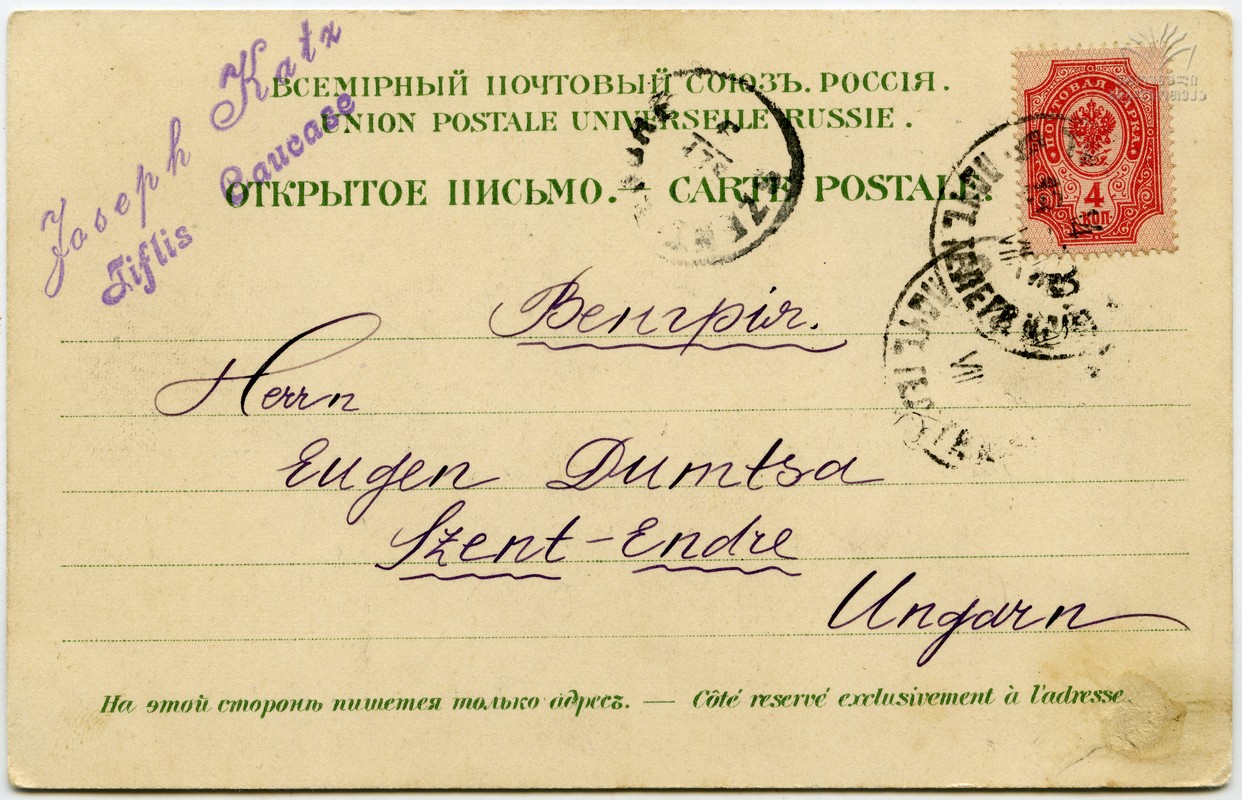 Joseph Katz
Tiflis Caucase
ВСЕМІРНЫЙ ПОЧТОВЫЙ СОЮЗЪ. РОССІЯ.
UNION POSTALE UNIVERSELLE RUSSIE.
ОТКРЫТОЕ ПИСЬМО. — CARTE POSTALE.
ПОЧТОВАЯ МАРКА
4
КОП
Венгрія.
Herrn
Eugen Dumtsa
Szent-Endre
Ungarn
VII
На этой сторонѣ пишется только адресъ. — Côté reservé exclusivement à l'adresse.